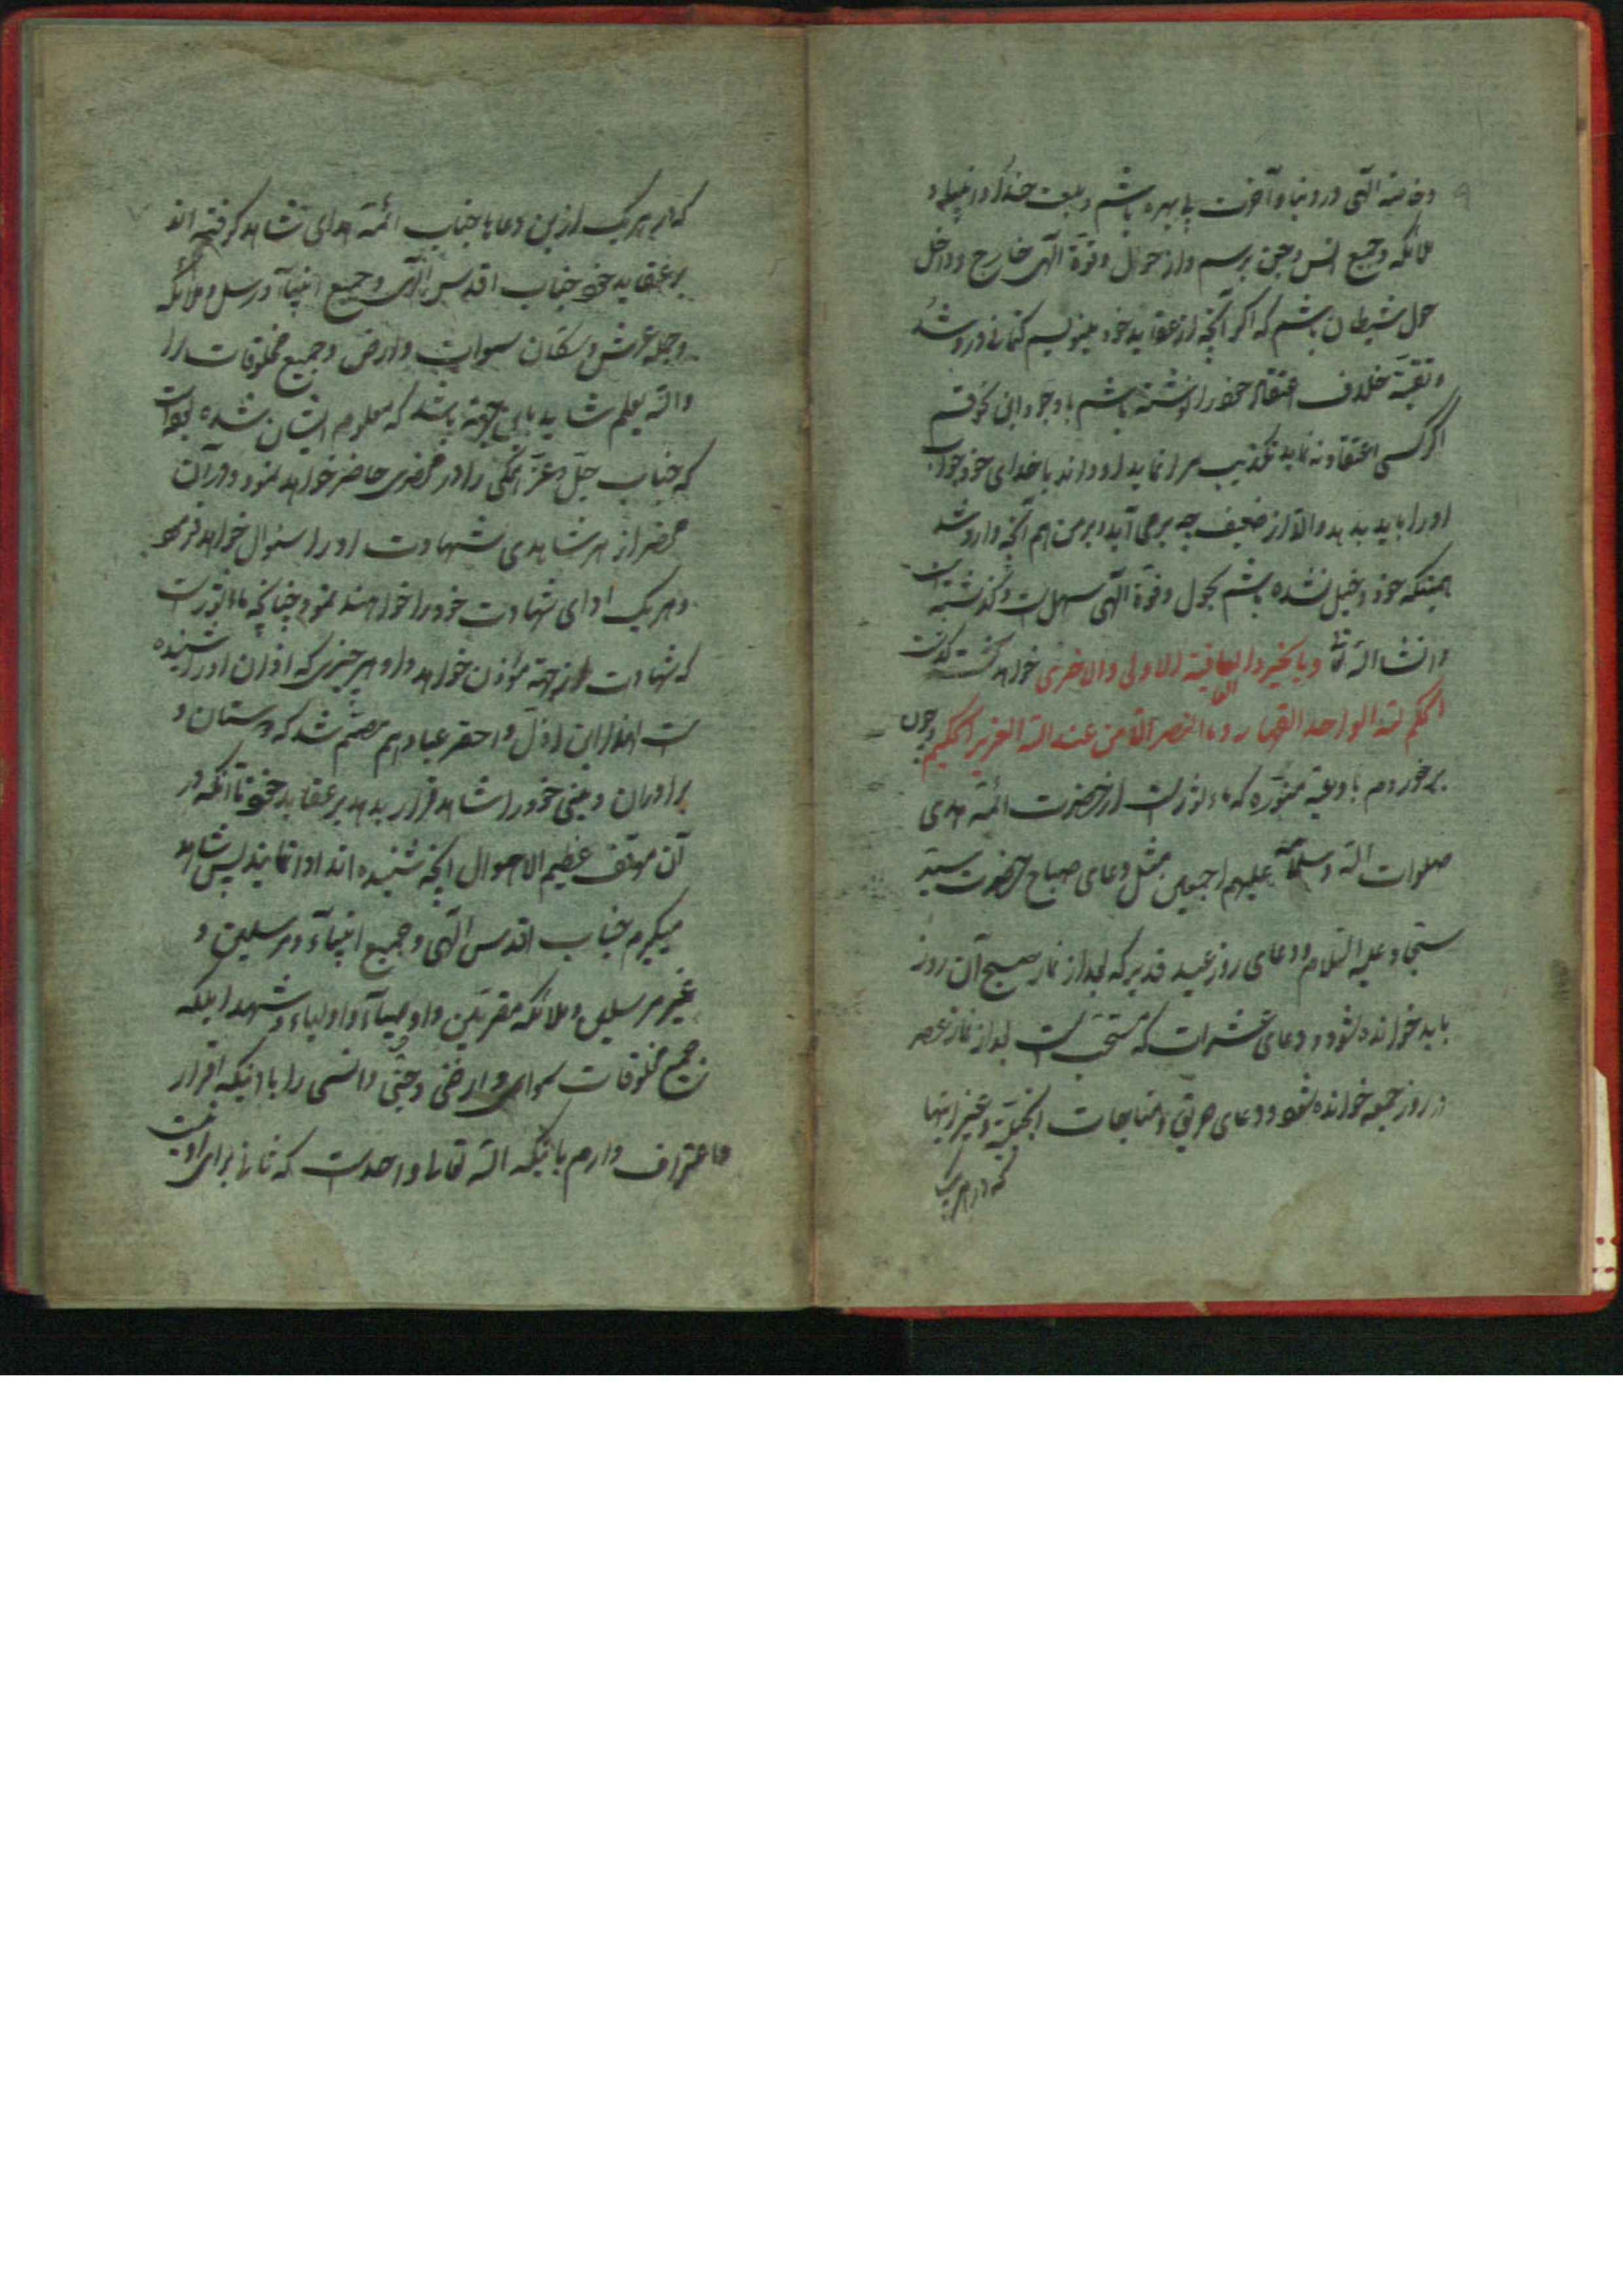 و خاصه الهی در دنیا و آخرت بی بهره باشم و بلعنت خدا و انبیاء و
ملائکه و جمیع انس و جن برسم و از حول و قوة الهی خارج و داخل
حول شیطان باشم که اگر آنچه از عقاید خود مینویسم کتمانی در او شد
و تقیة خلاف اعتقاد خود را نوشته باشم با وجود این نحو قسم
اگر کسی اعتقاد ننماید تکذیب مرا نماید او داند با خدای خود جواب
او را باید بدهد والا از ضعیف چه بر می آید و بر من هم آنچه وارد شد
همینکه خود دخیل نشده باشم بحول و قوة الهی سهل است و گذشته است
و انشاء الله و بالخیر و العافیة الاولی و الاخری خواهد گذشت
الحکم لله الواحد القهار و ما النصر الا من عند الله العزیز الحکیم و چون
برخوردم بادعیه منوره که ماثور است از حضرت ائمه هدی
صلوات الله و سلامه علیهم اجمعین مثل دعای صباح حضرت سید
سجاد علیه السلام و دعای روز عید غدیر که بعد از نماز صبح آن روز
باید خوانده شود و دعای عشرات که مستحب است بعد از نماز عصر
در روز جمعه خوانده شود و دعای حریق و مناجات انجیلیه و غیر اینها
که در هریک
که در هریک از این دعاها جناب ائمه هدای شاهد گرفته اند
بر عقاید خود جناب اقدس الهی و جمیع انبیاء و رسل و ملائکه
و حمله عرش و سکان سموات و ارض و جمیع مخلوقات را
و الله یعلم شاید باین جهة باشد که معلوم ایشان شده بود
که جناب جل و عز همگی را در محضری حاضر خواهد نمود و در آن
محضر از هر شاهدی شهادت او را سئوال خواهد فرمود
و هریک ادای شهادت خود را خواهند نمود چنانچه ماثور است
که شهادت از جهة مؤذن خواهد داد هر چیزی که اذان او را شنیده
است لهذا این اذل و احقر عباد هم مصمم شد که دوستان و
برادران دینی خود را شاهد قرار بدهد بر عقاید خود تا آنکه در
آن موقف عظیم الاهوال آنچه شنیده اند ادا نمایند پس شاهد
میگیرم جناب اقدس الهی و جمیع انبیاء و مرسلین و
غیر مرسلین و ملائکه مقربین و اوصیاء و اولیاء و شهدا بلکه
جمیع مخلوقات سمواتی و ارضی و جنی و انسی را با اینکه اقرار
و اعتراف دارم باینکه الله تعالی واحد است که ثانی برای او نیست